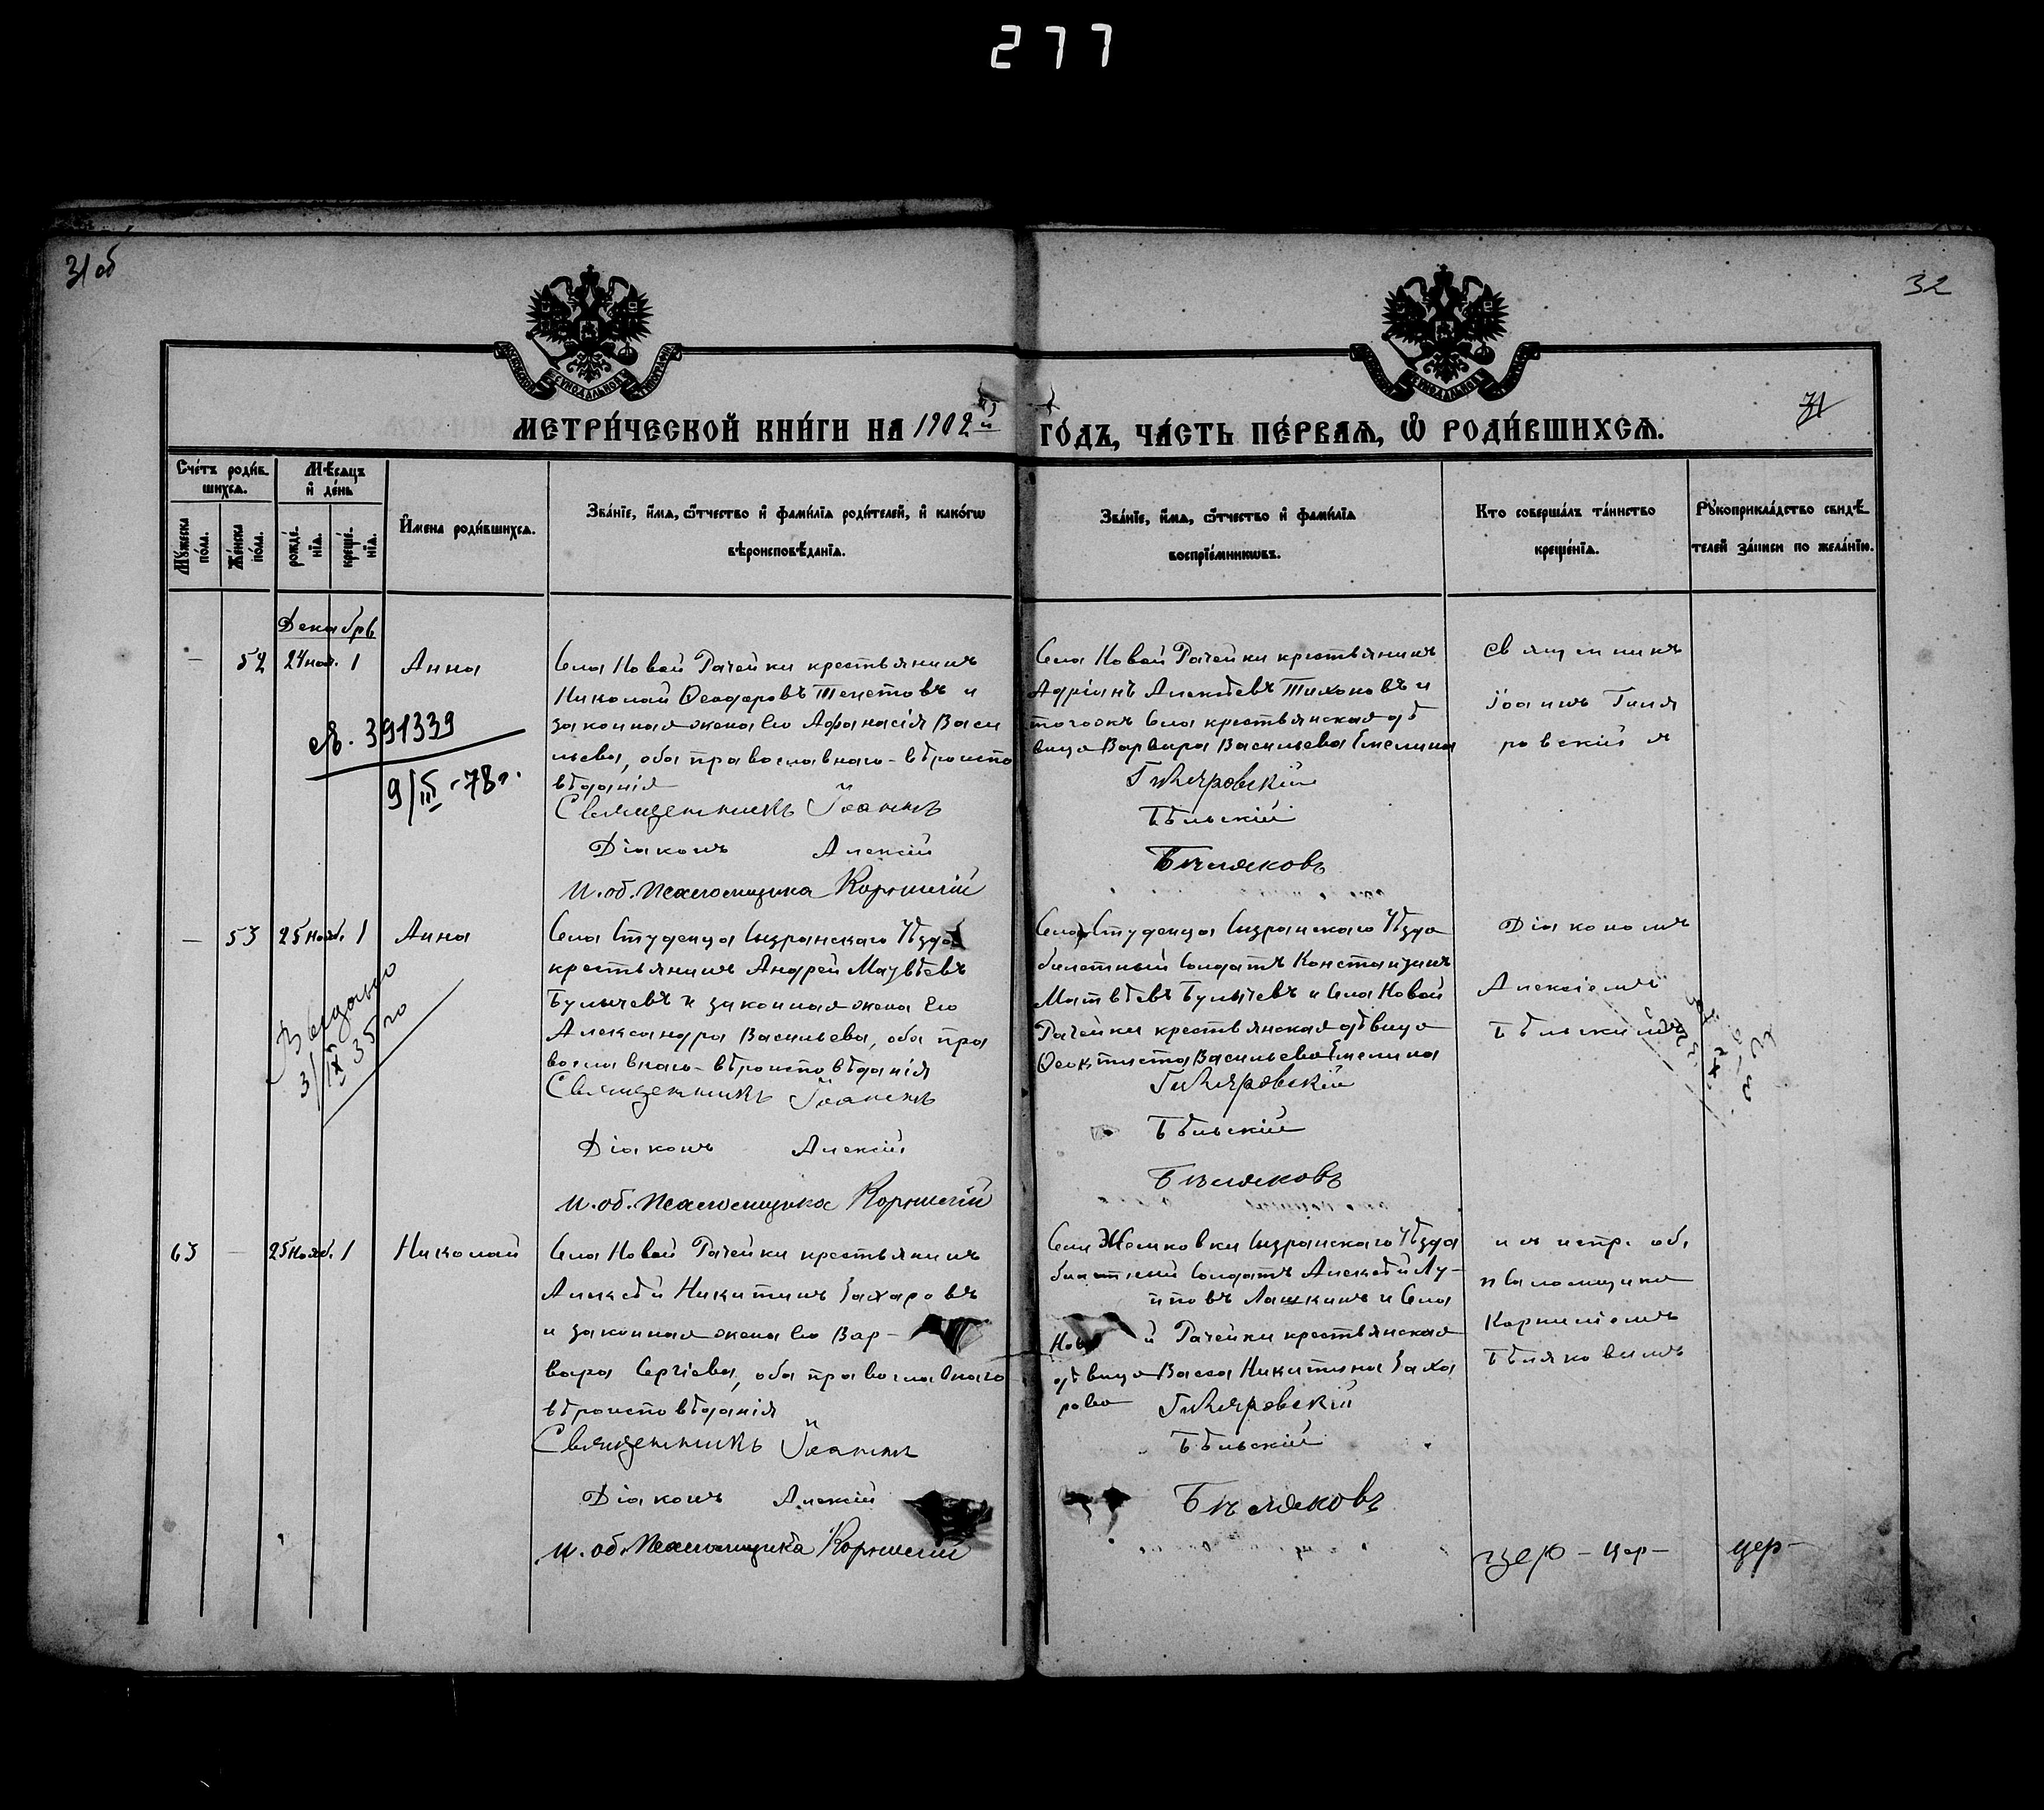 277
31 об
32
31
МЕТРИ́ЧЕСКОЙ КНИ́ГИ НА 1902 й ГО́ДЪ, ЧА́СТЬ ПЕ́РВАѦ, Ѽ РОДИ́ВШИХСѦ.
Сче́тъ роди́в-
шихсѧ.
Мꙋ́жеска по́ла.
Же́нска по́ла.
Мѣ́сѧцъ
и҆ де́нь
рожде́-
нїѧ.
креще́-
нїѧ.
И҆мена роди́вшихсѧ.
Зва́нїе, и҆́мѧ, ѻ҆́тчество и҆ фами́лїѧ роди́телей, и҆ како́гѡ
вѣроисповѣ́данїѧ.
Зва́нїе, и҆́мѧ, ѻ҆́тчество и҆ фами́лїѧ
воспрїе́мникѡвъ.
Кто соверша́лъ та́инство
креще́нїѧ.
Рꙋкоприкла́дство свидѣ́-
телей за́писи по жела́нїю.
Декабрь
— 52 24 ноя. 1 Анна
Села Новой Рачейки крестьянинъ
Николай Ѳеодоровъ Тенетовъ и
законная жена его Афанасія Васи
льева, оба православнаго вѣроиспо
вѣданія
Священникъ Іоаннъ
Діаконъ Алексій
И. об. псаломщика Корнилій
Села Новой Рачейки крестьянинъ
Адріанъ Алексѣевъ Тихоновъ и
тогожъ села крестьянская дѣ
вица Варвара Васильева Емелина
Гиляровскій
Бѣльскій
Бѣляковъ
Священникъ
Іоаннъ Гиля
ровскій
391339
9/III-78г.
— 53 25 нояб. 1 Анна
Села Студенца Сызранскаго Уѣзда
крестьянинъ Андрей Матвѣевъ
Булычевъ и законная жена его
Александра Васильева, оба пра
вославнаго вѣроисповѣданія
Священникъ Іоаннъ
Діаконъ Алексій
И. об. псаломщика Корнилій
Села Студенца Сызранскаго Уѣзда
билетный солдатъ Константинъ
Матвѣевъ Булычевъ и села Новой
Рачейки крестьянская дѣвица
Ѳеоктиста Васильева Емелина
Гиляровскій
Бѣльскій
Бѣляковъ
Діакономъ
Алексіемъ
Бѣльскимъ
3/IX 35 го
63 — 25 нояб. 1 Николай
Села Новой Рачейки крестьянинъ
Алексѣй Никитинъ Захаровъ
и законная жена его Вар-
вара Сергіева, оба православнаго
вѣроисповѣданія
Священникъ Іоаннъ
Діаконъ Алексій
И. об. псаломщика Корнилій
Села Жемковки Сызранскаго Уѣзда
билетный солдатъ Алексѣй Лу-
повъ Лашкинъ и села
Ново й Рачейки крестьянская
дѣвица Васса Никитина Заха
рова
Гиляровскій
Бѣльскій
Бѣляковъ
испр. об.
псаломщика
Корниліемъ
Бѣляковымъ
цер-